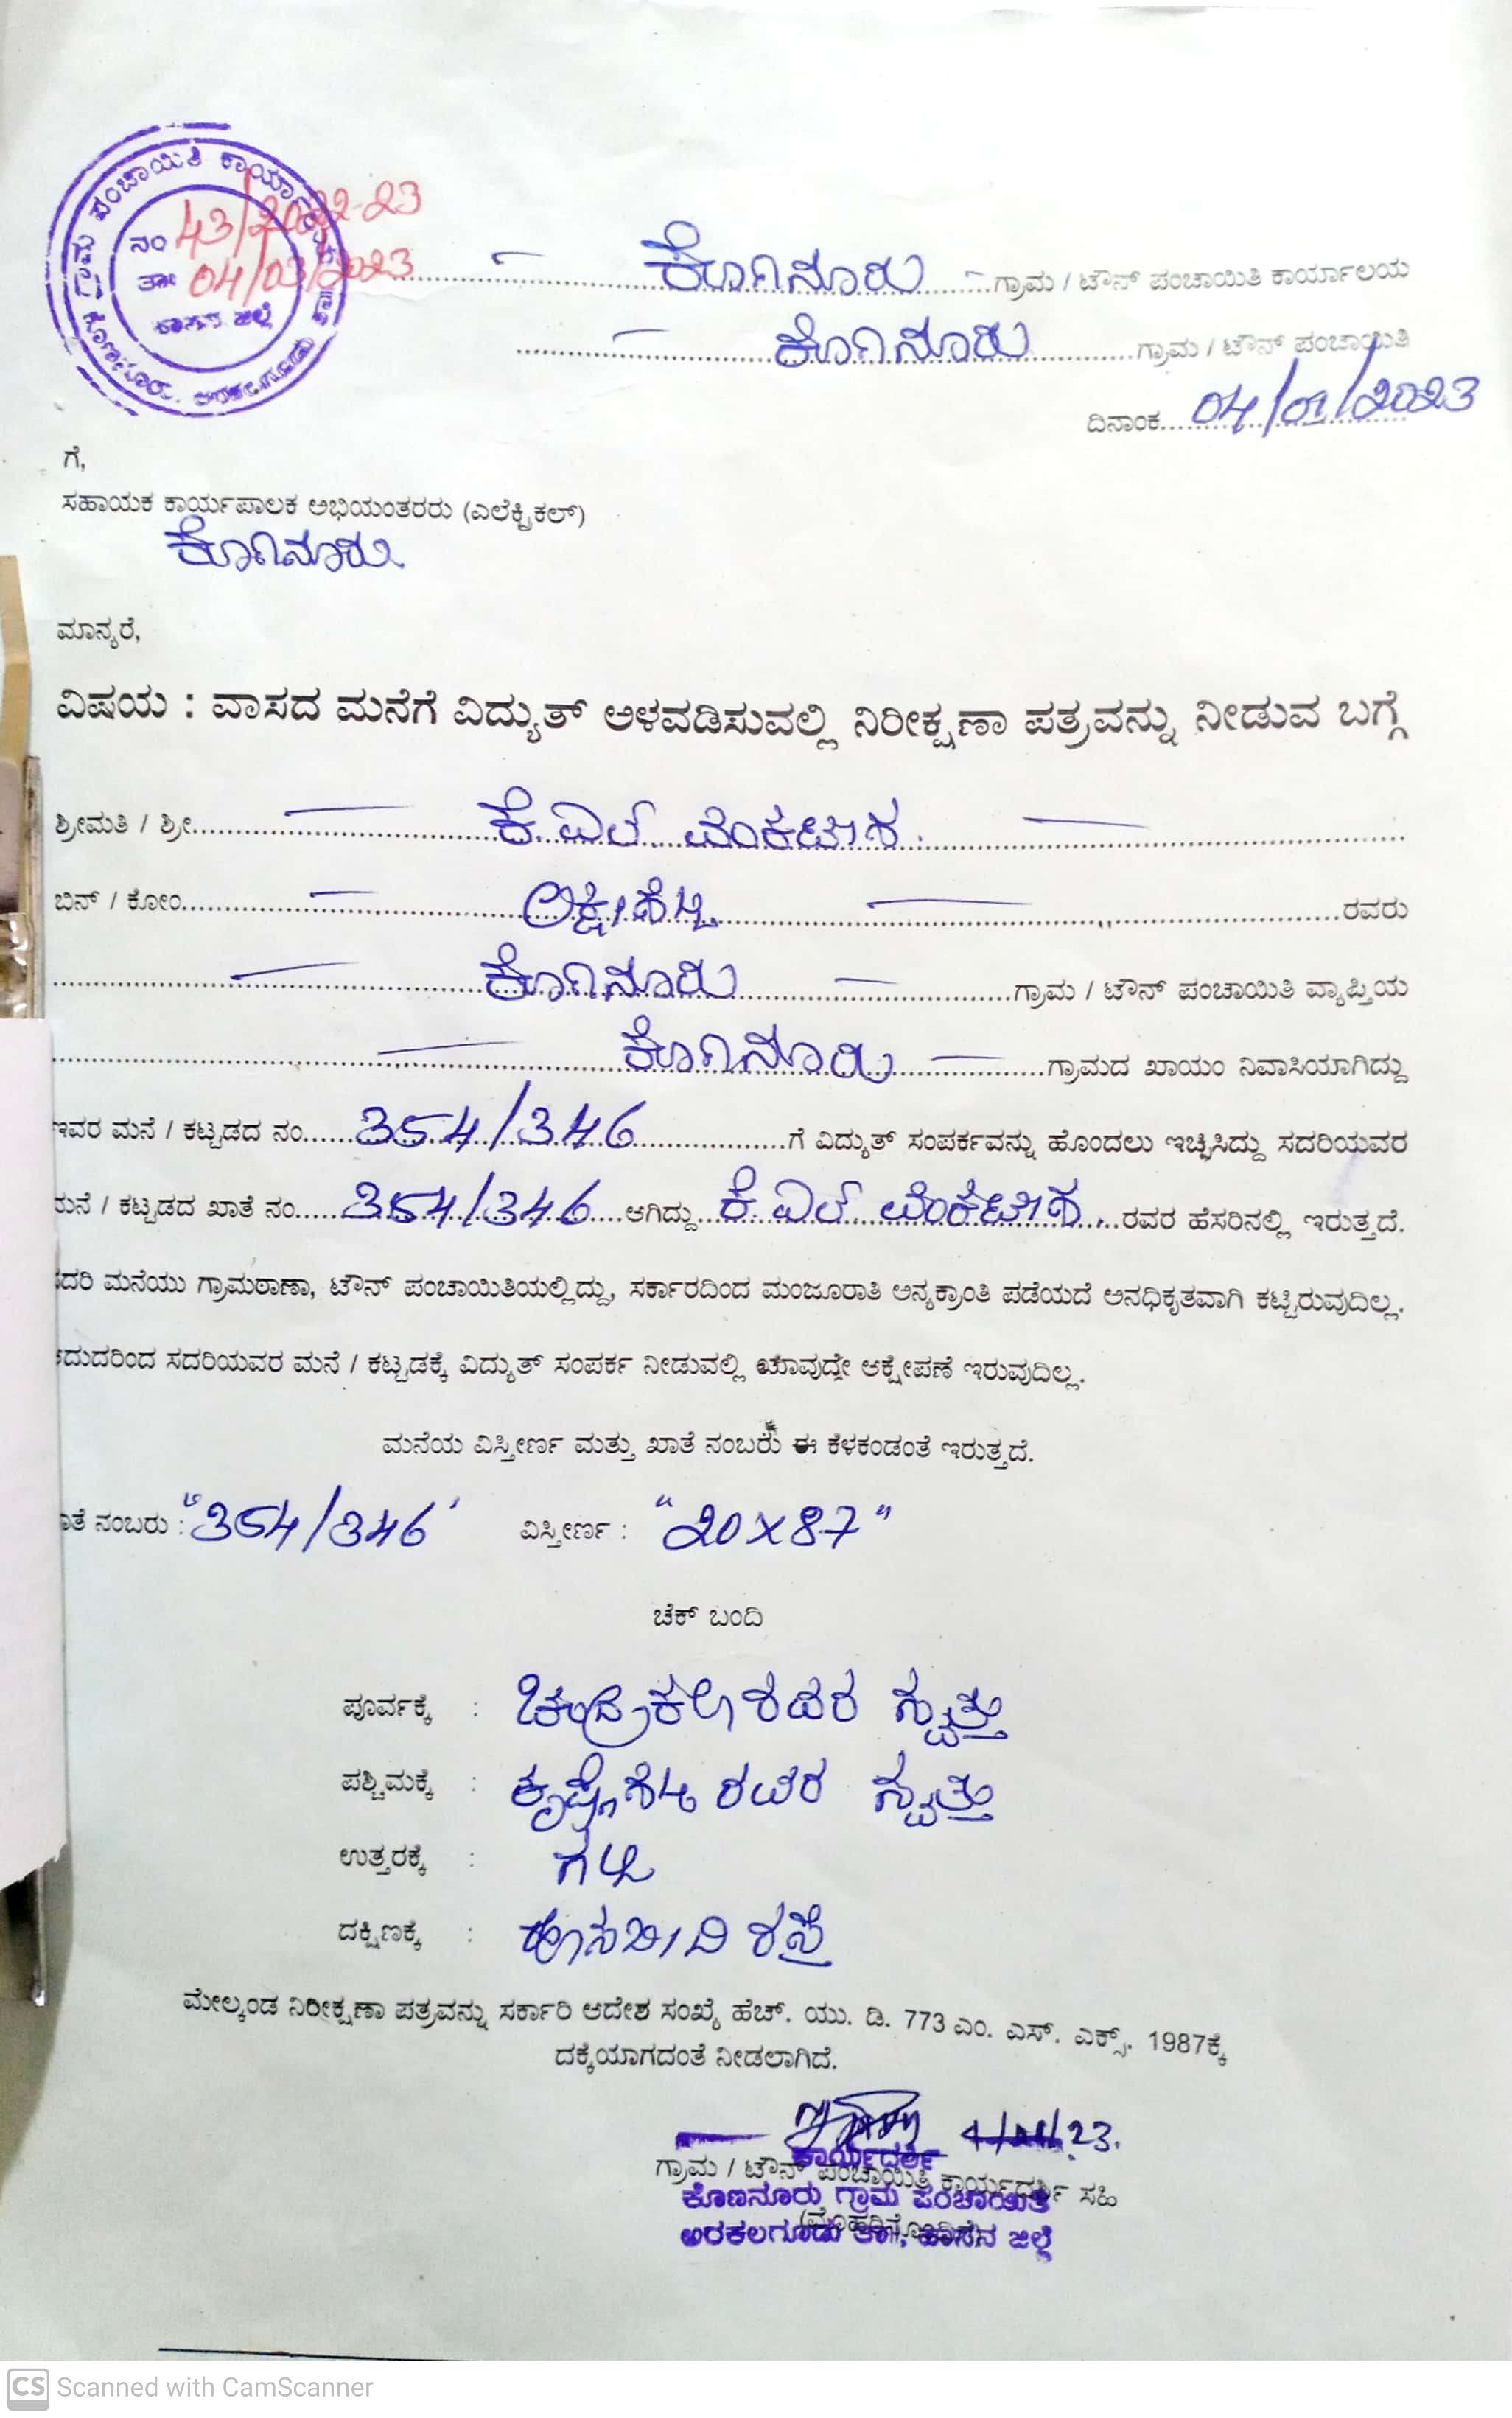 ಗ್ರಾಮ ಪಂಚಾಯಿತಿ ಕಾರ್ಯಾಲಯ
ನಂ 43/2022-23
ತಾ॥ 04/03/2023
ಹಾಸನ ಜಿಲ್ಲೆ
ಕೊಣನೂರು ಗ್ರಾಮ / ಟೌನ್ ಪಂಚಾಯಿತಿ ಕಾರ್ಯಾಲಯ
ಕೊಣನೂರು ಗ್ರಾಮ / ಟೌನ್ ಪಂಚಾಯಿತಿ
ದಿನಾಂಕ 04/01/2023
ಗೆ,
ಸಹಾಯಕ ಕಾರ್ಯಪಾಲಕ ಅಭಿಯಂತರರು (ಎಲೆಕ್ಟ್ರಿಕಲ್)
ಕೊಣನೂರು.
ಮಾನ್ಯರೆ,
ವಿಷಯ : ವಾಸದ ಮನೆಗೆ ವಿದ್ಯುತ್ ಅಳವಡಿಸುವಲ್ಲಿ ನಿರೀಕ್ಷಣಾ ಪತ್ರವನ್ನು ನೀಡುವ ಬಗ್ಗೆ
ಶ್ರೀಮತಿ / ಶ್ರೀ ಕೆ.ಎಲ್. ವೆಂಕಟೇಶ.
ಬಿನ್ / ಕೋಂ ಲಕ್ಷ್ಮೀಶೆಟ್ಟಿ ರವರು
ಕೊಣನೂರು ಗ್ರಾಮ / ಟೌನ್ ಪಂಚಾಯಿತಿ ವ್ಯಾಪ್ತಿಯ
ಕೊಣನೂರು ಗ್ರಾಮದ ಖಾಯಂ ನಿವಾಸಿಯಾಗಿದ್ದು
ಇವರ ಮನೆ / ಕಟ್ಟಡದ ನಂ 354/346 ಗೆ ವಿದ್ಯುತ್ ಸಂಪರ್ಕವನ್ನು ಹೊಂದಲು ಇಚ್ಛಿಸಿದ್ದು ಸದರಿಯವರ
ಮನೆ / ಕಟ್ಟಡದ ಖಾತೆ ನಂ 354/346 ಆಗಿದ್ದು ಕೆ.ಎಲ್ ವೆಂಕಟೇಶ. ರವರ ಹೆಸರಿನಲ್ಲಿ ಇರುತ್ತದೆ.
ಸದರಿ ಮನೆಯು ಗ್ರಾಮಠಾಣಾ, ಟೌನ್ ಪಂಚಾಯಿತಿಯಲ್ಲಿದ್ದು, ಸರ್ಕಾರದಿಂದ ಮಂಜೂರಾತಿ ಅನ್ಯಕ್ರಾಂತಿ ಪಡೆಯದೆ ಅನಧಿಕೃತವಾಗಿ ಕಟ್ಟಿರುವುದಿಲ್ಲ.
ಆದುದರಿಂದ ಸದರಿಯವರ ಮನೆ / ಕಟ್ಟಡಕ್ಕೆ ವಿದ್ಯುತ್ ಸಂಪರ್ಕ ನೀಡುವಲ್ಲಿ ಯಾವುದೇ ಆಕ್ಷೇಪಣೆ ಇರುವುದಿಲ್ಲ.
ಮನೆಯ ವಿಸ್ತೀರ್ಣ ಮತ್ತು ಖಾತೆ ನಂಬರು ಈ ಕೆಳಕಂಡಂತೆ ಇರುತ್ತದೆ.
ಖಾತೆ ನಂಬರು : "354/346" ವಿಸ್ತೀರ್ಣ : "20x87"
ಚೆಕ್ ಬಂದಿ
ಪೂರ್ವಕ್ಕೆ : ಚಂದ್ರಕಲಾ ರವರ ಸ್ವತ್ತು
ಪಶ್ಚಿಮಕ್ಕೆ : ಕೃಷ್ಣೇಶೆಟ್ಟಿ ರವರ ಸ್ವತ್ತು
ಉತ್ತರಕ್ಕೆ : ಗಲ್ಲಿ
ದಕ್ಷಿಣಕ್ಕೆ : ರಸ್ತೆ
ಮೇಲ್ಕಂಡ ನಿರೀಕ್ಷಣಾ ಪತ್ರವನ್ನು ಸರ್ಕಾರಿ ಆದೇಶ ಸಂಖ್ಯೆ ಹೆಚ್. ಯು. ಡಿ. 773 ಎಂ. ಎಸ್. ಎಕ್ಸ್. 1987ಕ್ಕೆ
ದಕ್ಕೆಯಾಗದಂತೆ ನೀಡಲಾಗಿದೆ.
ಕಾರ್ಯದರ್ಶಿ
ಗ್ರಾಮ / ಟೌನ್ ಪಂಚಾಯಿತಿ ಕಾರ್ಯದರ್ಶಿ ಸಹಿ
ಕೊಣನೂರು ಗ್ರಾಮ ಪಂಚಾಯಿತಿ
(ಮೊಹರಿನೊಂದಿಗೆ)
ಅರಕಲಗೂಡು ತಾ॥, ಹಾಸನ ಜಿಲ್ಲೆ
CS Scanned with CamScanner